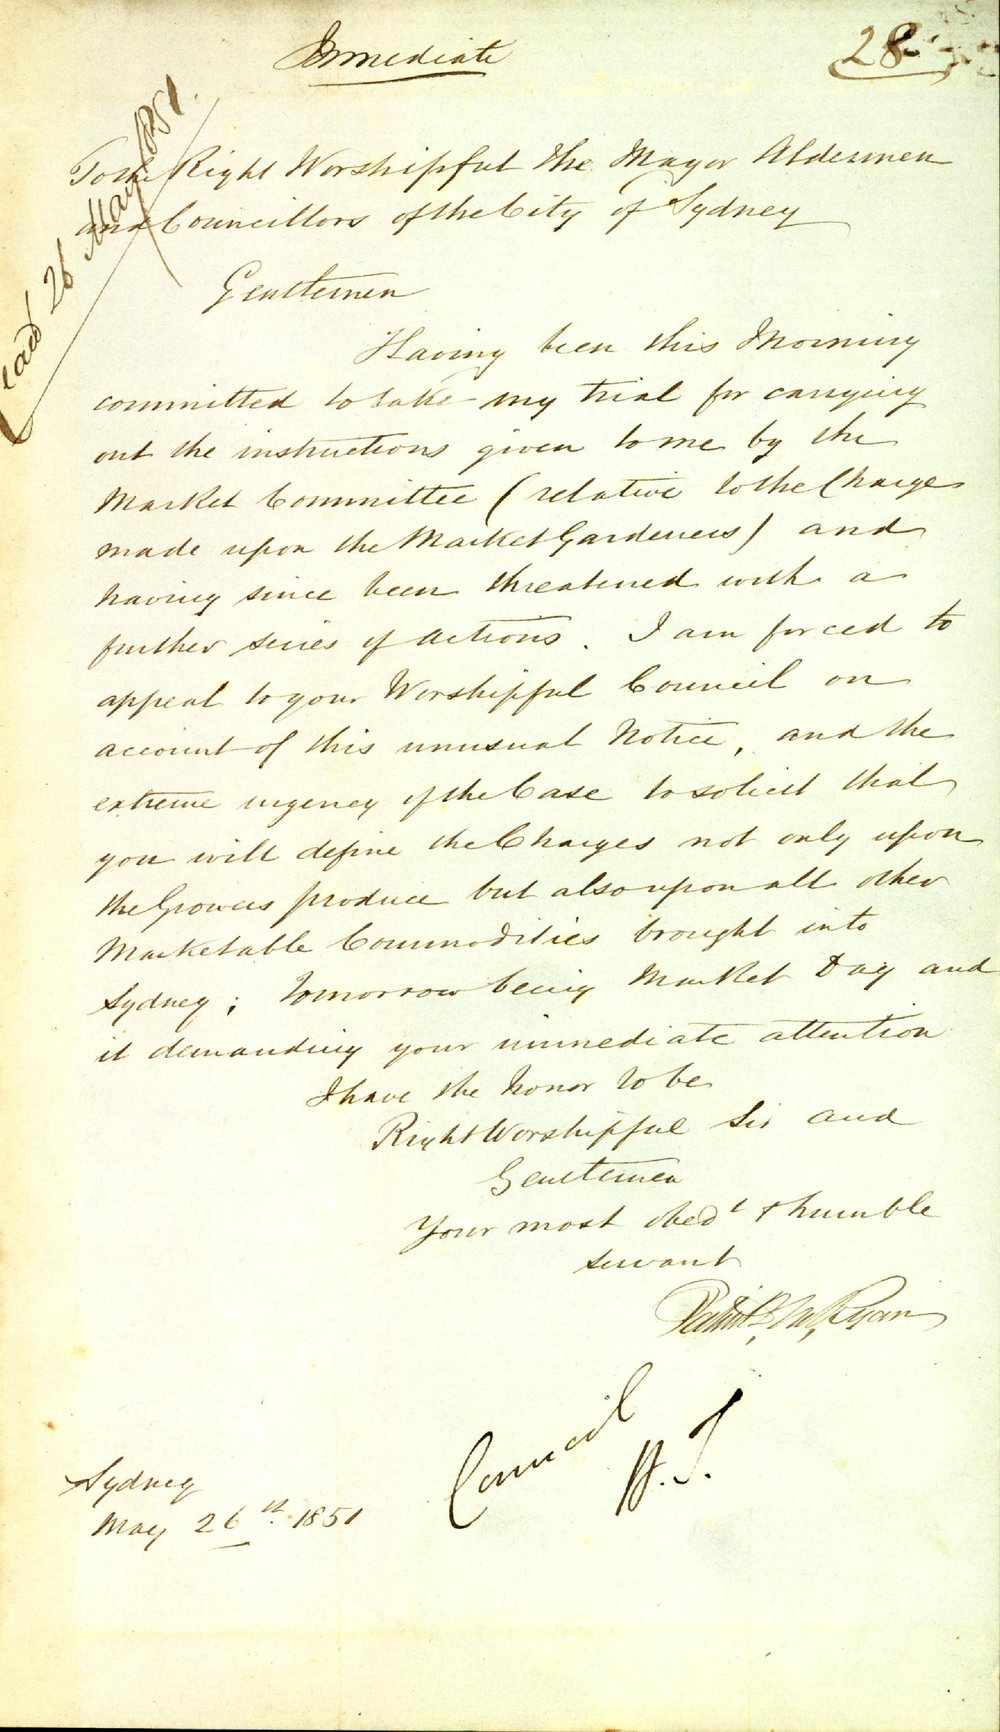 Immediate
28
Read 26 May 1851.
To the Right Worshipful the Mayor Aldermen
and Councillors of the City of Sydney
Gentlemen
Having been this Morning
committed to take my trial for carrying
out the instructions given to me by the
Market Committee (relative to the Charge
made upon the Market Gardeners) and
having since been threatened with a
further series of actions. I am forced to
appeal to your Worshipful Council on
account of this unusual Notice, and the
extreme urgency of the Case to solicit that
you will define the Charges not only upon
the Growers produce but also upon all other
Marketable Commodities brought into
Sydney; tomorrow being Market Day and
it demanding your immediate attention
I have the honor to be
Right Worshipful Sir and
Gentlemen
Your most obedt & humble
servant
Ryan
Council
Sydney
May 26th. 1851